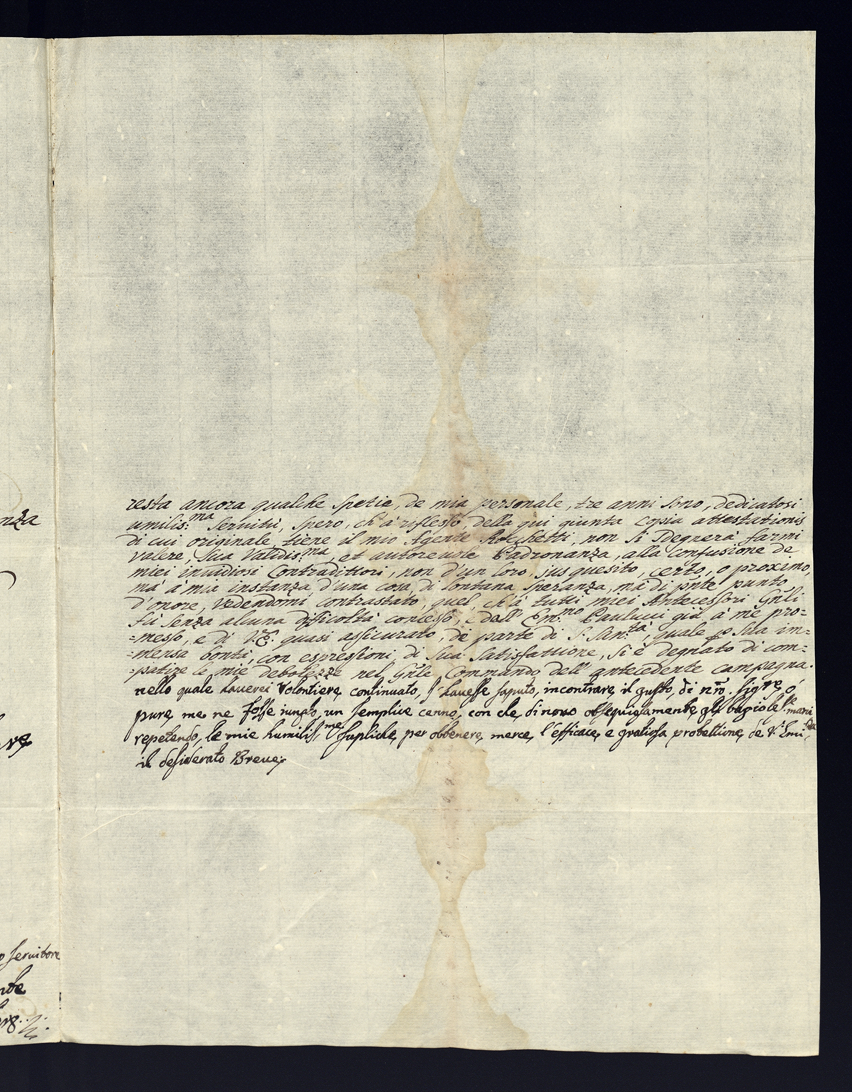 nza
resta ancora qualche spetie, de mia personale, tre anni sono, dedicatosi
umilis:ma Servitù, spero, ch'à riflesso, della qui giunta Copia attestationis
di cui originale tiene il mio Agente non si sdegnera farmi
valere, Sua Validis:ma, et autoreuole Padronanza, alla Confusione de
miei inuidiosi Contradittori, non d'un loro, jus quesito, certo, o proximo,
mà à mia instanza, d'una cosa, di lontana Speranza, mà di pnte punto
d'onore, vedendomi contrastato, quel ch'a tutti miei Antecessori Gnli
fù senza alcuna difficoltà concesso, e dall' Em:mo Paulucci già à me pro=
=messo, e di quasi assicurato, de parte di S: San:tà, quale p Sua im=
=mensa bontà, con espressioni di Sua Satisfattione, si è degnato di com=
=patire le mie debolezze nel Gnle Commando dell' antecedente campagna.
nello quale hauerei Volontiere, continuato, s' hauesse saputo, incontrare, il gusto, di nro. Sig:re, ó
pure, me ne fosse un semplice cenno, con che, di nouo obsequiosamente, gli bagio le mani
repetendo, le mie humilis:me Supliche, per obbenere, merce, l'efficace, e gratiosa probettione, de V: Emi:
il desiderato Breue;
Seruitore